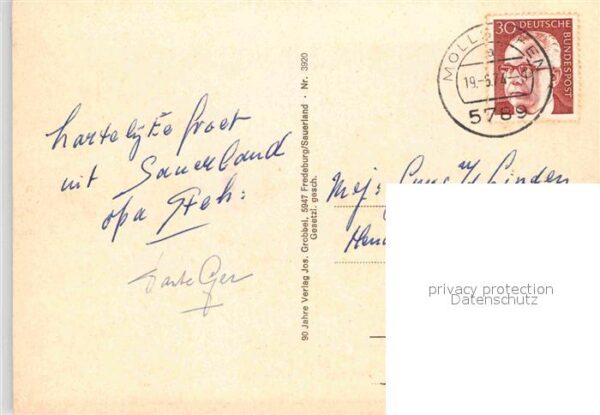 hartelijke groet
uit Sauerland
opa Steh:
Tante Ger
90 Jahre Verlag Jos. Grobbel, 5947 Fredeburg/Sauerland · Nr. 3920
Gesetzl. gesch.
30 DEUTSCHE BUNDESPOST
19.-6.74
5789
Mej:
Linden
privacy protection
Datenschutz